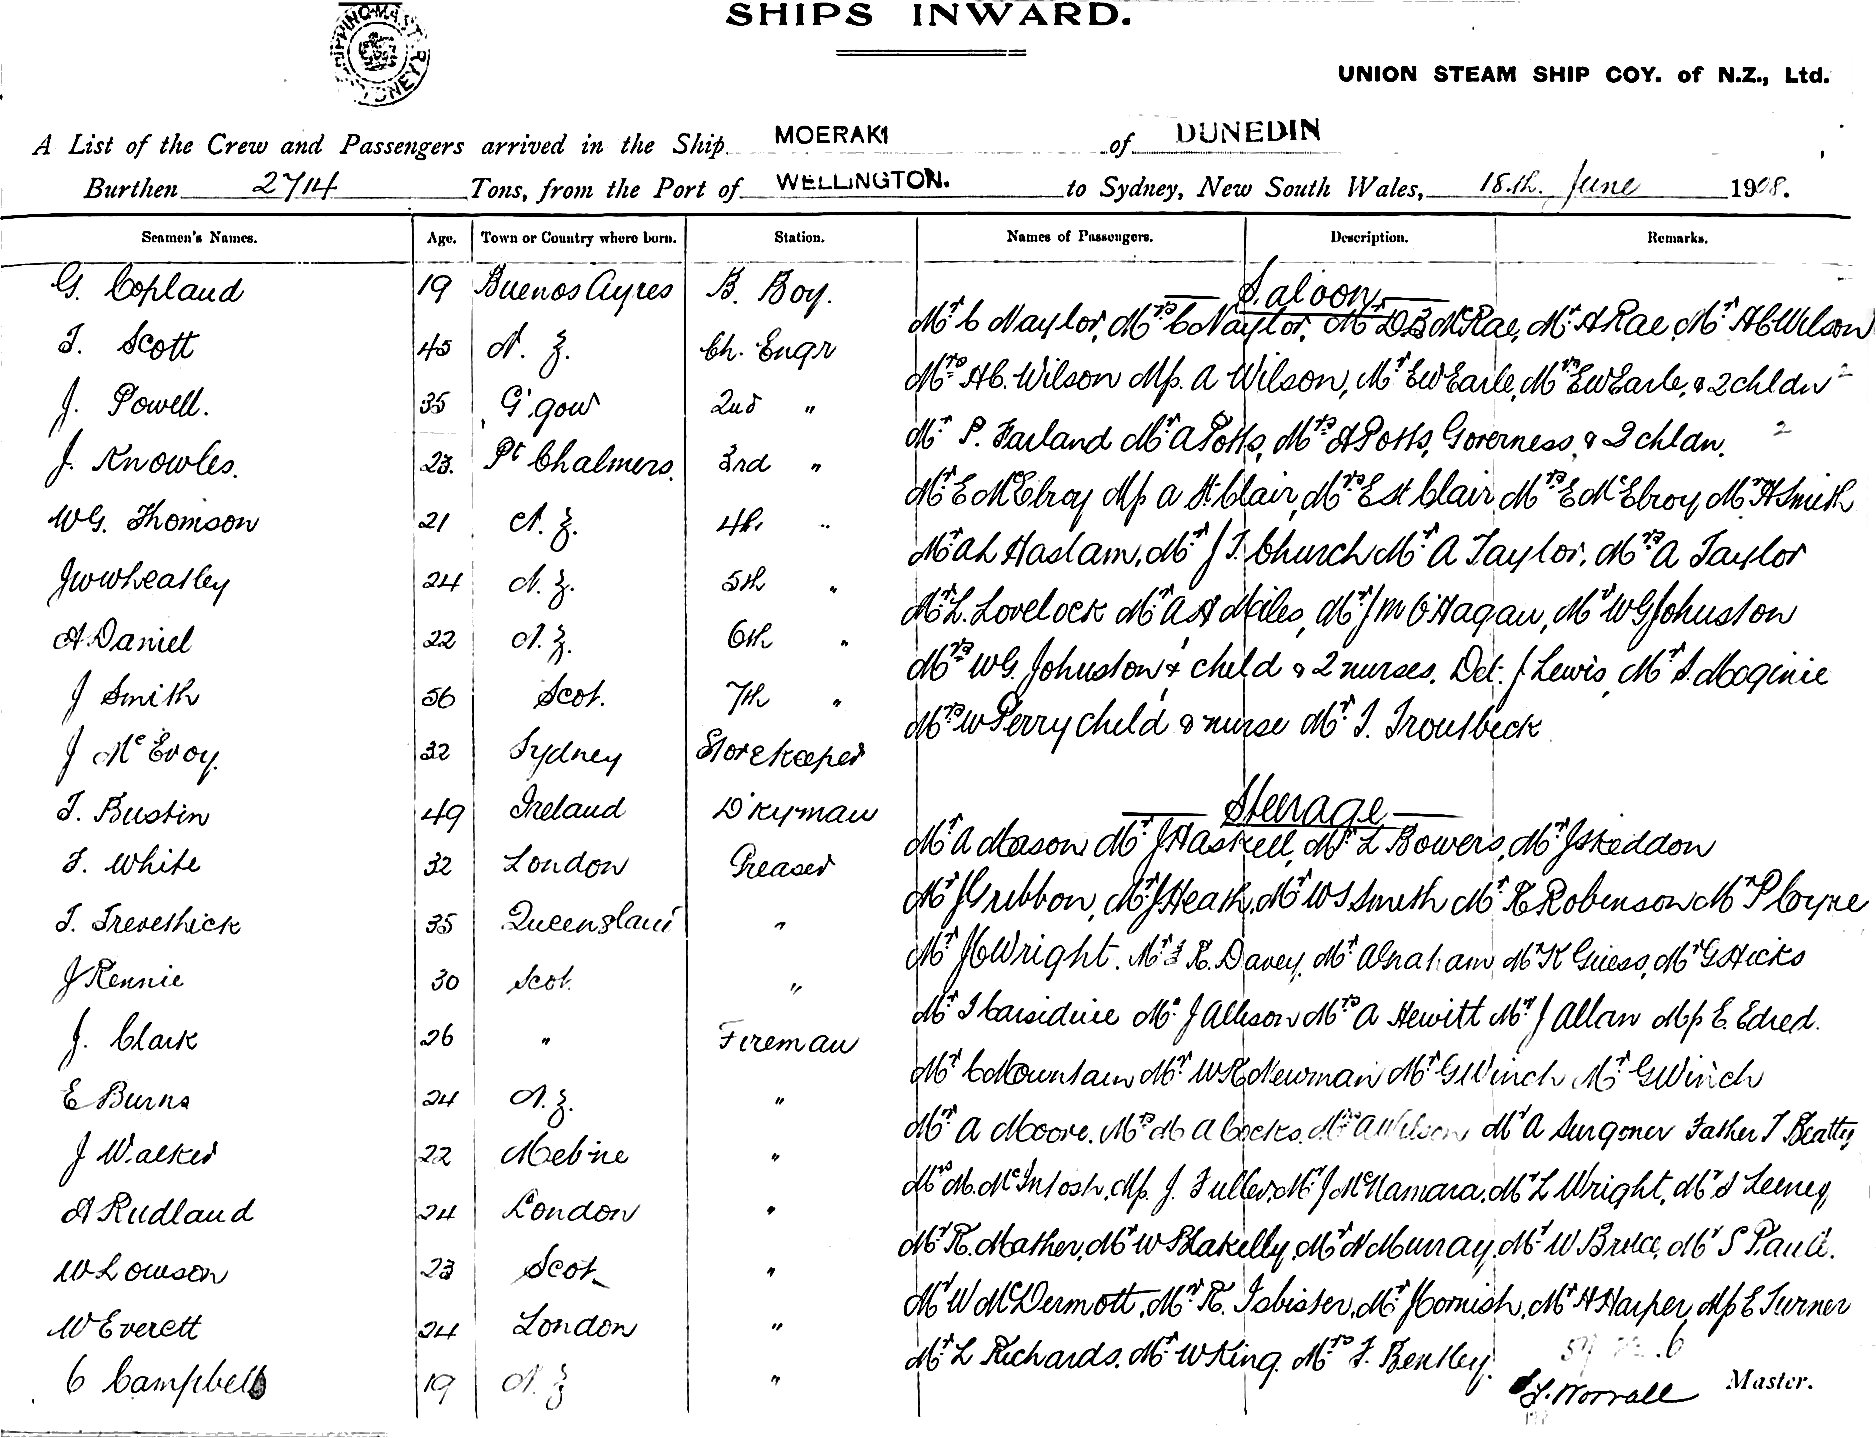 SHIPS INWARD.
UNION STEAM SHIP COY. of N.Z., Ltd.
A List of the Crew and Passengers arrived in the Ship MOERAKI of DUNEDIN
Burthen 2714 Tons, from the Port of WELLINGTON. to Sydney, New South Wales, 15.th. June 1908.
Seamen's Names. Age. Town or Country where born. Station. Names of Passengers. Description. Remarks.
G. Copland 19 Buenos Ayres B. Boy.
T. Scott 45 N. Z. Ch. Engr
J. Powell. 35 G'gow 2nd "
J. Knowles. 23. Pt Chalmers. 3rd "
WG. Thomson 21 N. Z. 4th "
JW Wheatley 24 N. Z. 5th "
A. Daniel 22 N. Z. 6th "
J Smith 56 Scot. 7th "
J McEvoy. 32 Sydney Storekeeper
T. Bustin 49 Ireland D'kyman
T. White 32 London Greaser
T. Trevethick 35 Queensland "
J Rennie 30 Scot. "
J. Clark 26 " Fireman
E Burns 24 N. Z. "
J Walker 22 Melb'ne "
A Rudland 24 London "
W Lowson 23 Scot. "
W Everett 24 London "
C Campbell 19 N. Z "
Saloon.
Mr. C Naylor, Mrs. C Naylor, Mr. McRae, Mr. A Rae, Mr. HC Wilson
Mrs. HC. Wilson Ms. A Wilson, Mr. EW Earle, Mrs. EW Earle, & 2 chldn 2
Mr. P. Farland Mr. A Potts, Mrs. A Potts, Governess, & 2 chldn. 2
Mr. E McElroy Ms A St Clair, Mrs. E St Clair Mrs. E McElroy Mr. H Smith
Mr. A L Haslam, Mr. J T. Church Mr. A Taylor, Mrs. A Taylor
Mr. L. Lovelock Mr. A H Miles, Mr. J M O'Hagan, Mr. WG Johnston
Mrs. WG. Johnston & child & 2 nurses. Det. J Lewis, Mr. S. Moginie
Mrs. W Perry child & nurse Mr. T. Troutbeck
Steerage
Mr. A Mason, Mr. J Haskell, Mr. L Bowers, Mr. J Skeddon
Mr. J Gribbon, Mr. J Heath, Mr. W S Smith Mr. R Robinson Mr P Coyne
Mr. JC Wright. Mr. R. Davey, Mr. A Graham Mr. K Guess, Mr. G Hicks
Mr. Mr. J Allison Mrs. A Hewitt Mr. J Allan Ms E. Edred.
Mr. C Mountain Mr. WR Newman Mr. G Winch Mr. G Winch
Mr. A Moore. Mrs. M A Cocks. Mrs. A Wilson Mr. A Surgoner Father T Beatty
Mrs. M. McIntosh, Ms. J. Fuller, Mr. J McNamara, Mr. L Wright, Mr. Leeney
Mr. R. Mather, Mr. W Blakelly, Mr. N Murray, Mr. W Bruce, Mr. S Pauli.
Mr. W McDermott, Mr. R. Isbister, Mr. J Cornish, Mr. H Harper, Ms E Turner
Mr. L Richards. Mr. W King. Mrs. F. Bentley.
Worrall Master.